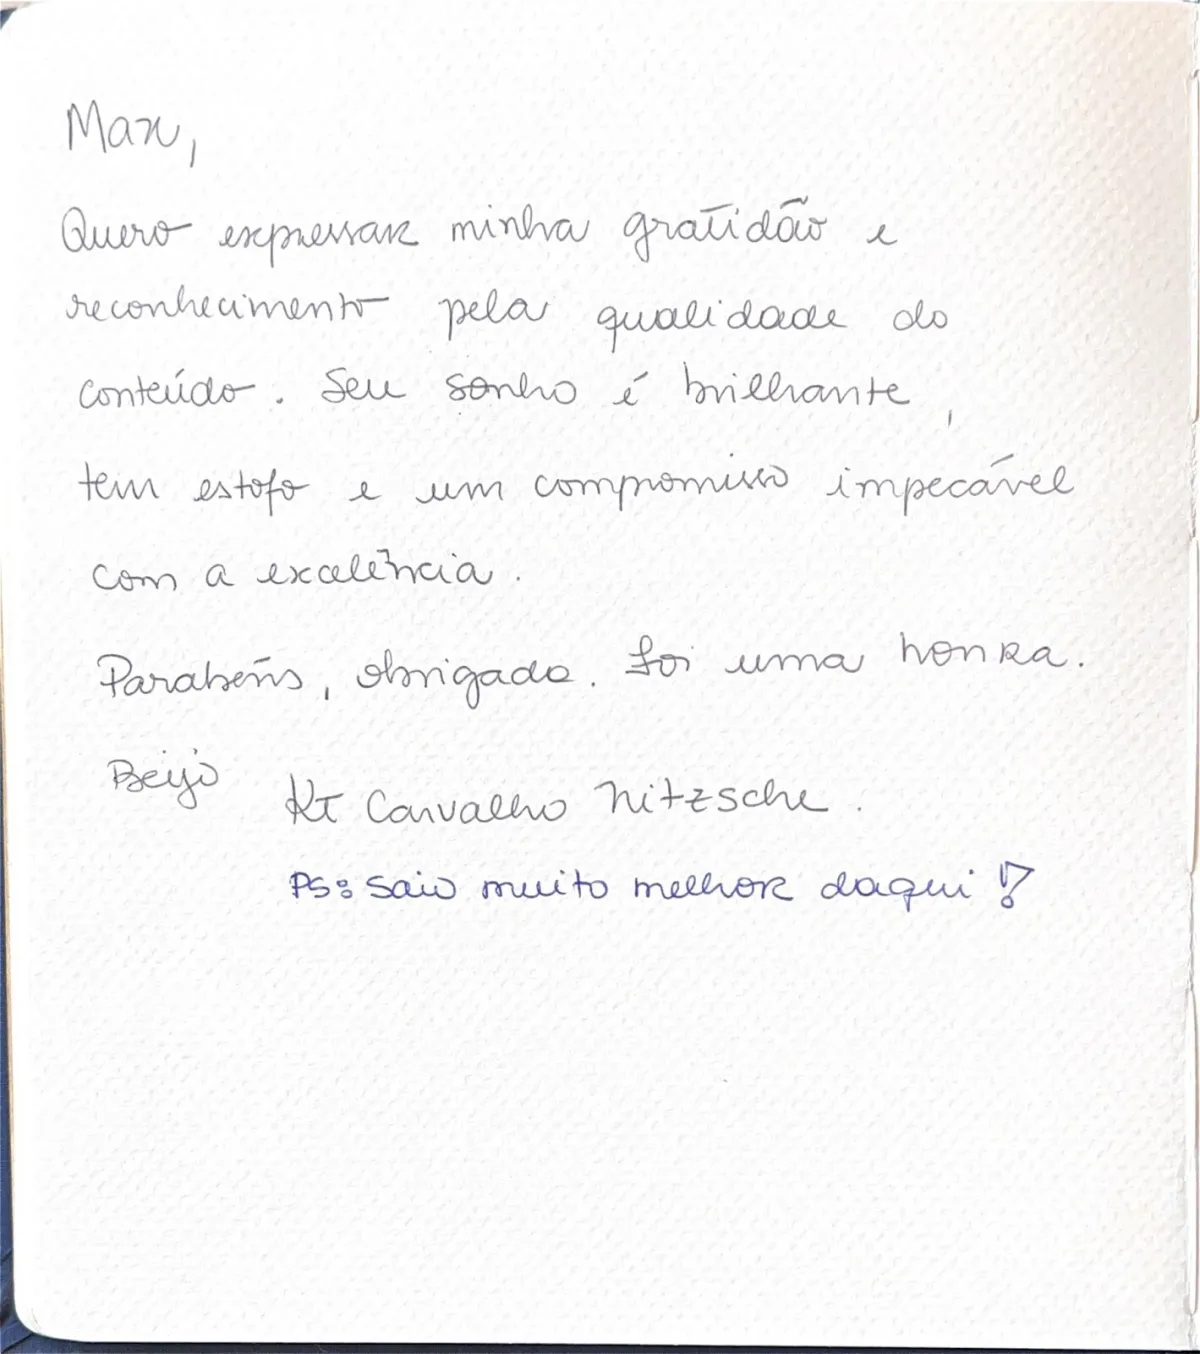 Max,
Quero expressar minha gratidão e
reconhecimento pela qualidade do
conteúdo. Seu sonho é brilhante,
tem estofo e um compromisso impecável
com a excelência.
Parabéns, obrigada. Foi uma honra.
Beijo
KT Carvalho Nitzsche.
PS: Saio muito melhor daqui!